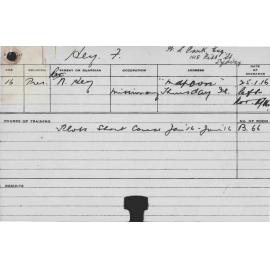 Hey. F.
W. S. Park Esq
108 Pitt St
Sydney
AGE RELIGION PARENT OR GUARDIAN OCCUPATION ADDRESS DATE OF ENTRANCE
16 Pres. Rev N. Hey Missionary "Mapoon" Thursday Is. 25.1.16
Left
COURSE OF TRAINING NO. OF ROOM
Short Course Jan '16 - Jun '16 B.66
RESULTS